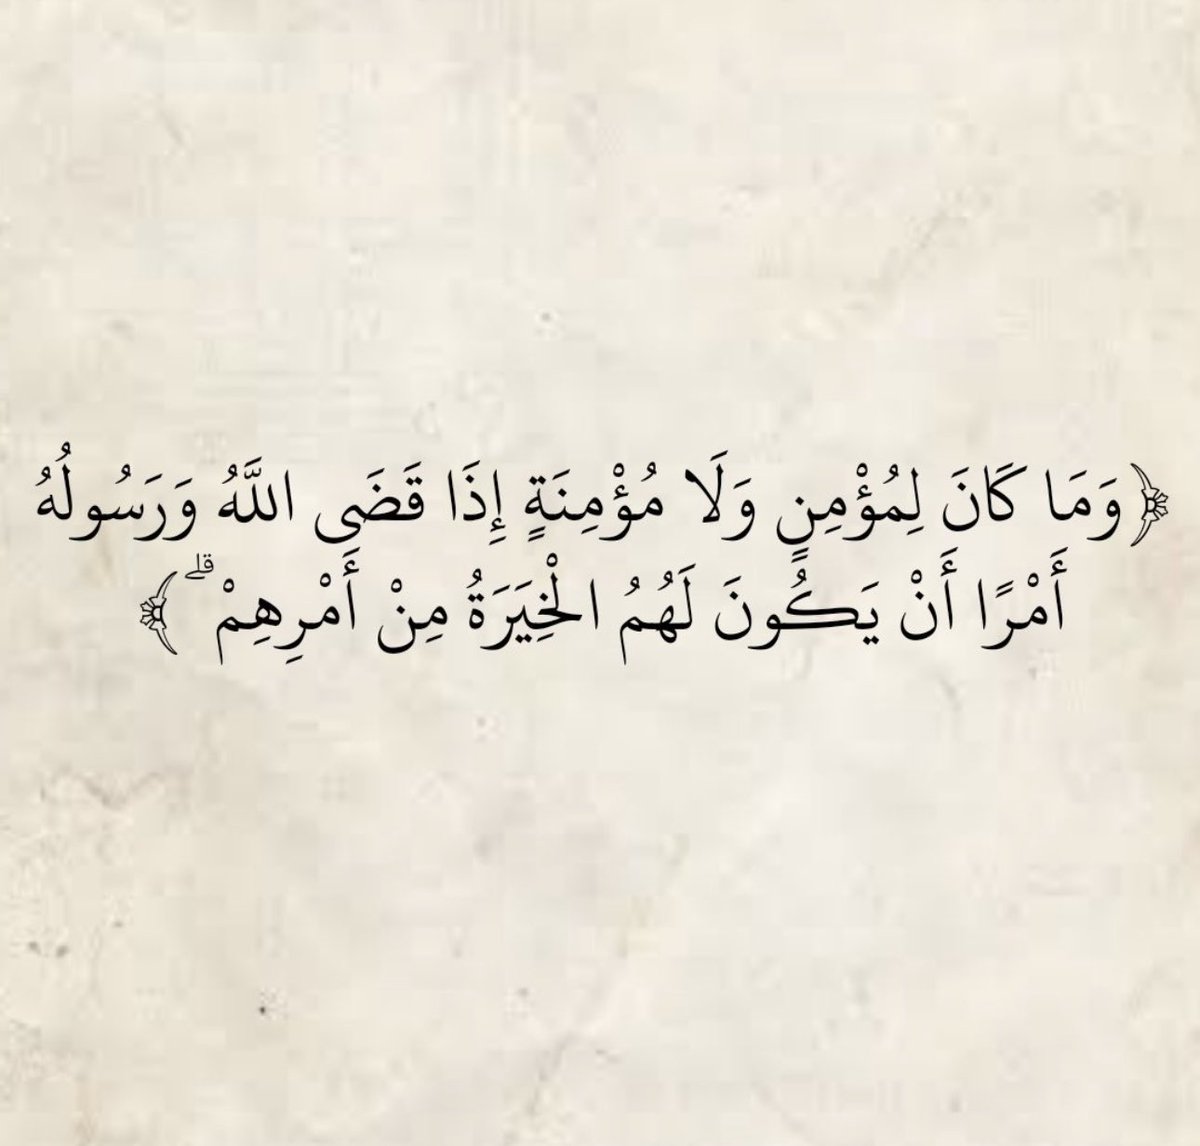 ﴿وَمَا كَانَ لِمُؤْمِنٍ وَلَا مُؤْمِنَةٍ إِذَا قَضَى اللَّهُ وَرَسُولُهُ
أَمْرًا أَنْ يَكُونَ لَهُمُ الْخِيَرَةُ مِنْ أَمْرِهِمْ ۗ﴾